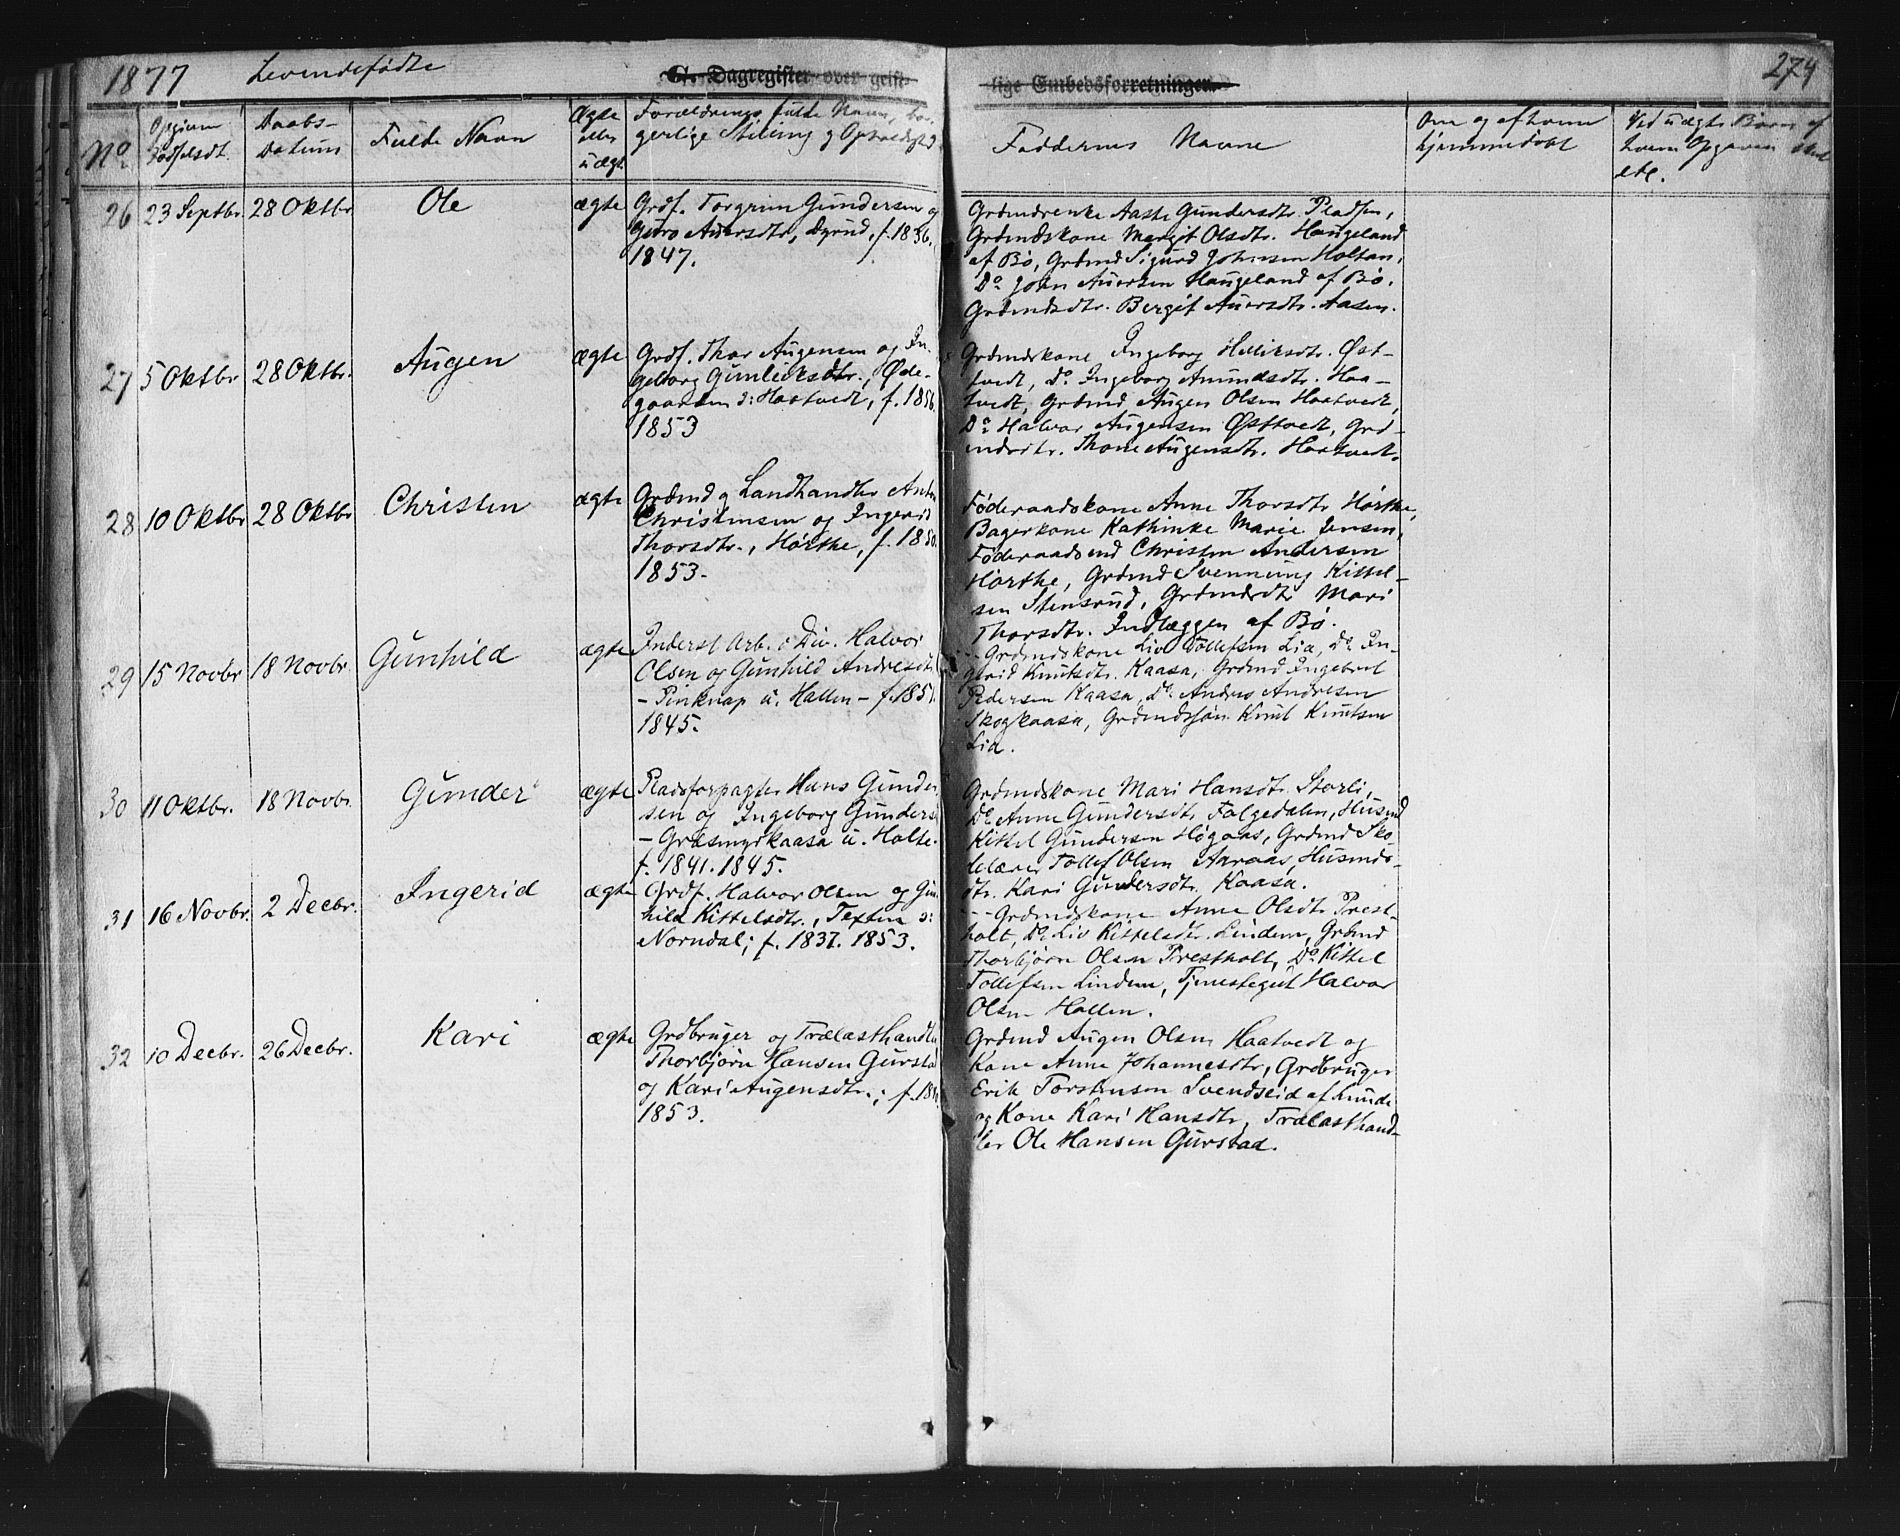 1877 Levendefødte
G. Dagregister over geist-
lige Embedsforretninger.
274
No
Opgiven Fødselsdt.
Daabs-Datum
Fulde Navn
Ægte eller uægte
Forældrenes fulde Navn, bor-
gerlige Stilling og Opholdssted
Faddernes Navne
Om og af hvem
hjemmedøbt
Ved uægte Børn af
hvem Opgaven
etc.
26 23 Septbr. 28 Oktbr Ole ægte
Grdf. Torgrim Gundersen og
Guro Auersdtr, f. 1856.
1847.
Aaste Gundersdtr. Pladsen,
Grdmdskone Margit Olsdtr. Haugeland
af Bø, Grdmd Sigurd Johnsen Holtan,
Do John Auersen Haugeland af Bø.
Grdmdsdtr. Bergit Auersdtr. Aasen.
27 5 Oktbr 28 Oktbr. Augen ægte
Grdf. Thor Augensen og In-
geborg Gunleiksdtr., Øde-
gaarden ɔ: Haatvedt, f. 1856.
1853
Grdmdskone Ingeborg Østt-
vedt, Do Ingeborg Amundsdtr. Haa-
tvedt, Grdmd Augen Olsen Haatvedt,
Do Halvor Augensen Østtvedt, Grd-
mdsdtr. Thone Augensdtr. Haatvedt.
28 10 Oktbr 28 Oktbr Christen ægte
Grdmd og Landhandler Anders
Christensen og Ingerid
Thorsdtr., Hørthe, f. 1850.
1853.
Føderaadskone Anne Thorsdtr Hørthe,
Bagerkone Kathinke Marie Jensen,
Føderaadsmd Christen Andersen
Hørthe, Grdmd Svennung Kittel-
sen Stensrud, Grdmdsdtr Mari
Thorsdtr. Indlæggen af Bø.
29 15 Novbr 18 Novbr. Gunhild ægte
Inderst Arb. i Div. Halvor
Olsen og Gunhild Andresdtr
- Pinknap u. Hallen - f. 1851.
1845.
- - Grdmdskone Liv Tollefsen Lia, Do In-
gerid Knutsdtr. Kaasa, Grdmd Ingebret
Pedersen Kaasa, Do Andres Andresen
Skogkaasa, Grdmdssøn Knut Knutsen
Lia.
30 11 Oktbr. 18 Novbr. Gunder ægte
Pladsforpagter Hans Gunder-
sen og Ingeborg Gundersd
- Græsmyrkaasa u. Holte.
f. 1841. 1845.
Grdmdskone Mari Hansdtr. Storli,
Do Anne Gundersdtr Folgedalen, Husmd
Kittel Gundersen Høgaas, Grdmd Sko-
lelærer Tollef Olsen Aaraas, Husmds-
dtr. Kari Gundersdtr. Kaasa.
31 16 Novbr. 2 Decbr. Ingerid ægte
Grdf. Halvor Olsen og Gun-
hild Kittelsdtr., Texten ɔ:
Norndal; f. 1837. 1853.
- - Grdmdskone Anne Olsdtr Prest-
holt, Do Liv Kittelsdtr. Lindem, Grdmd
Thorbjørn Olsen Prestholt, Do Kittel
Tollefsen Lindem, Tjenestegut Halvor
Olsen Hallen.
32 10 Decbr. 26 Decbr. Kari ægte
Grdbruger og Trælasthandler
Thorbjørn Hansen Gurstad
og Kari Augensdtr.; f. 18
1853.
Grdmd Augen Olsen Haatvedt og
Kone Anne Johannesdtr, Grdbruger
Erik Torstensen Svendseid af Lunde
og Kone Kari Hansdtr, Trælasthand-
ler Ole Hansen Gurstad.